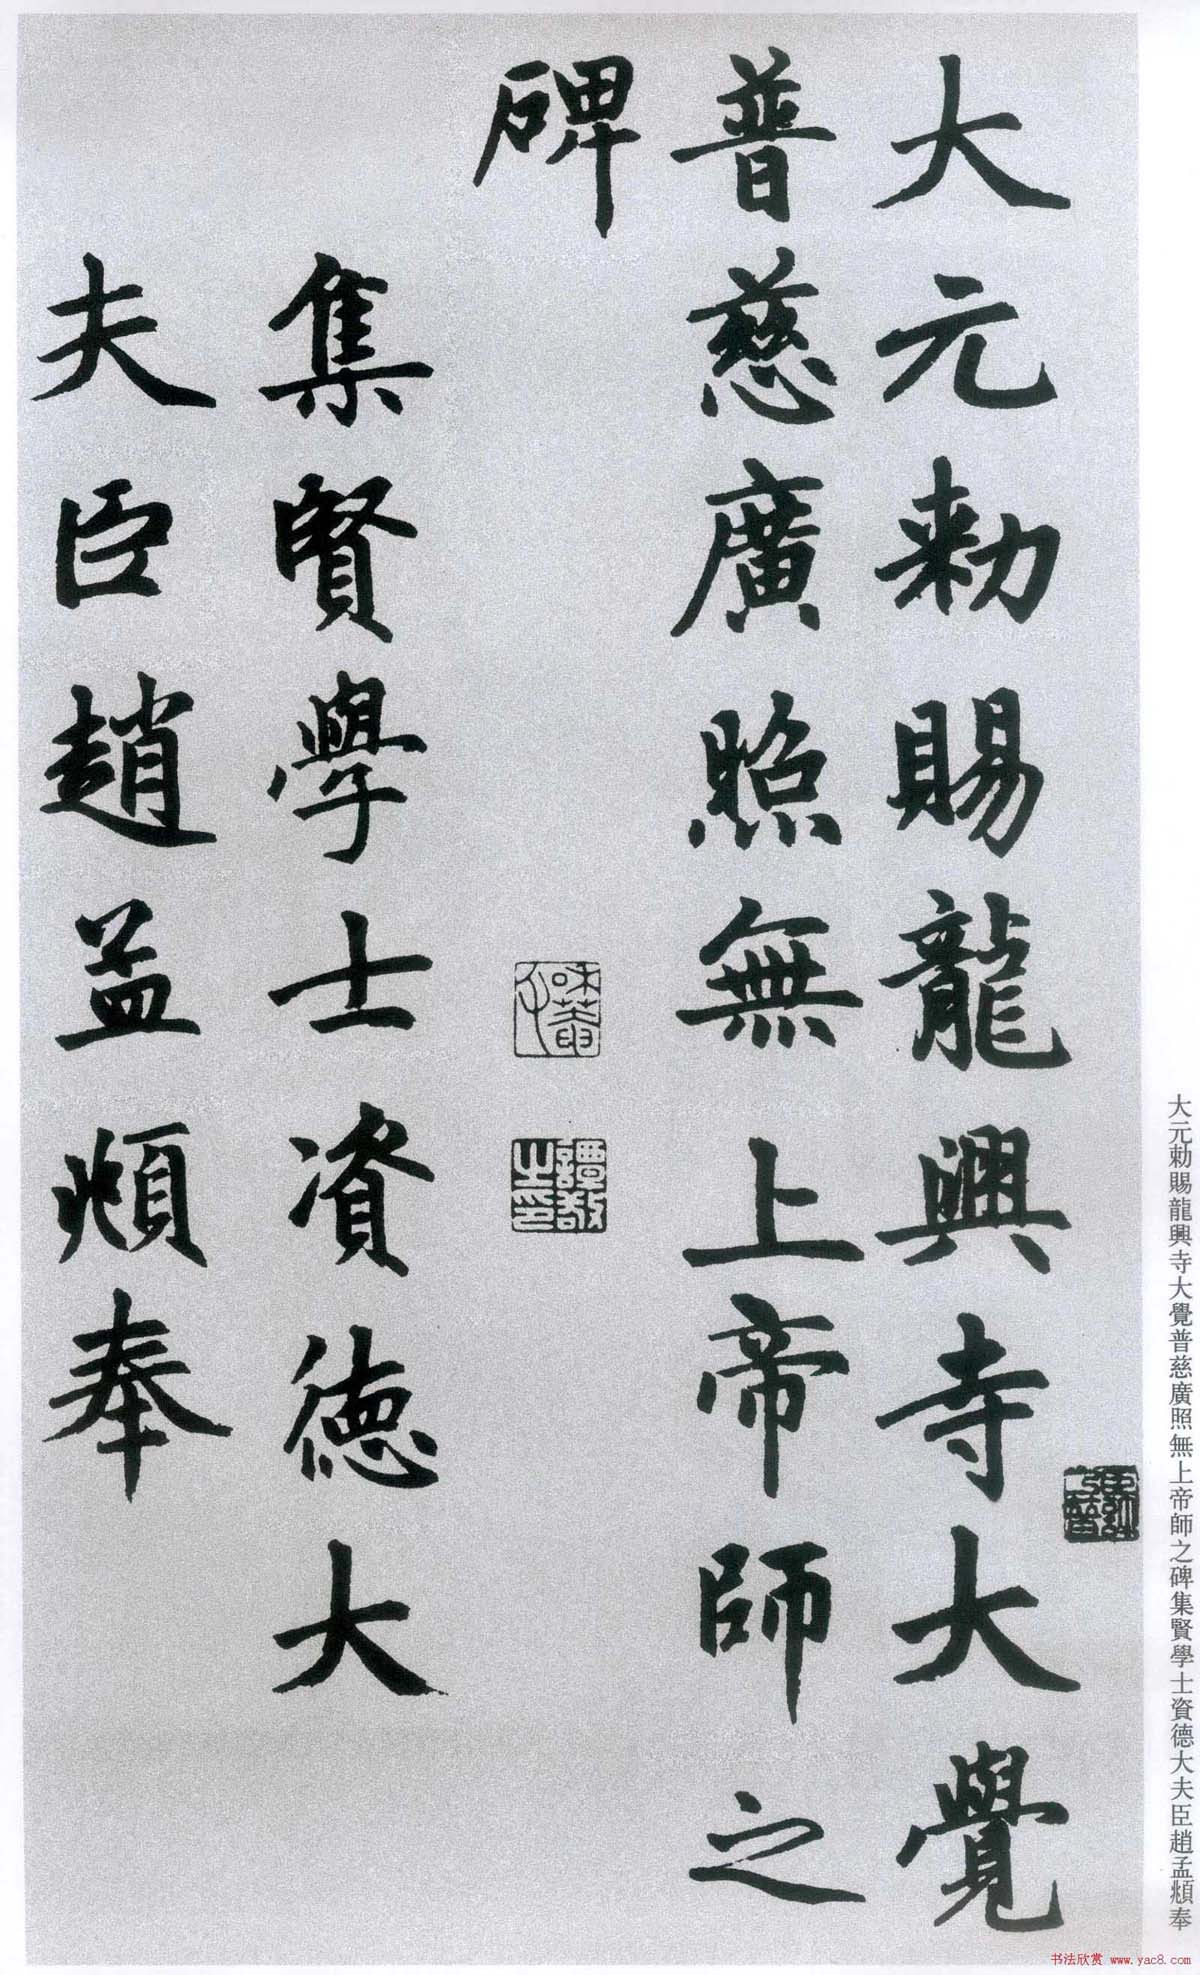 大元勅賜龍興寺大覺
普慈廣照無上帝師之
碑
集賢學士資德大
夫臣趙孟頫奉
譚敬之印
大元勅賜龍興寺大覺普慈廣照無上帝師之碑集賢學士資德大夫臣趙孟頫奉
书法欣赏 www.yac8.com